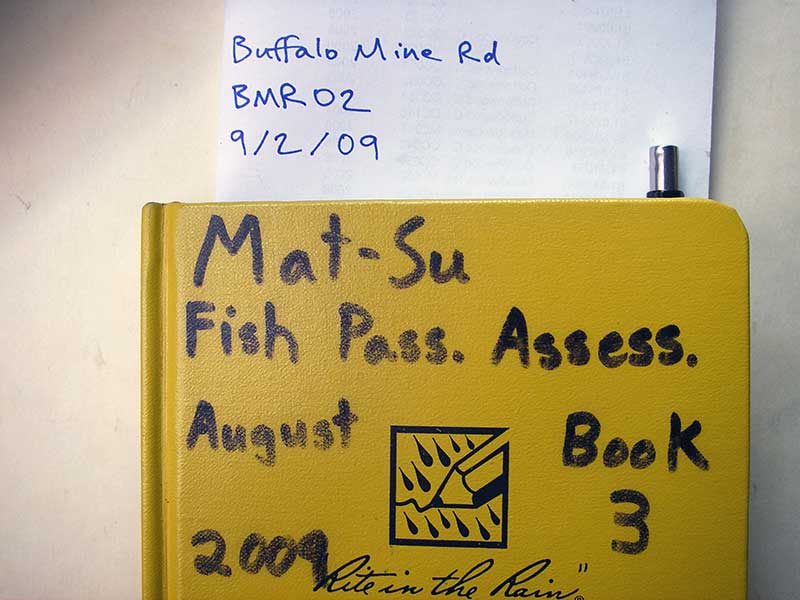 Buffalo Mine Rd
BMR02
9/2/09
Mat-Su
Fish Pass. Assess.
August
Book
3
2009
Rite in the Rain"®